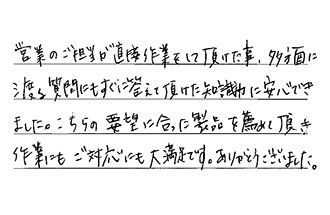 営業のご担当が直接作業をして頂けた事、多方面に
渡る質問にもすぐに答えて頂けた知識力に安心でき
ました。こちらの要望に合った製品を薦めて頂き
作業にもご対応にも大満足です。ありがとうございました。